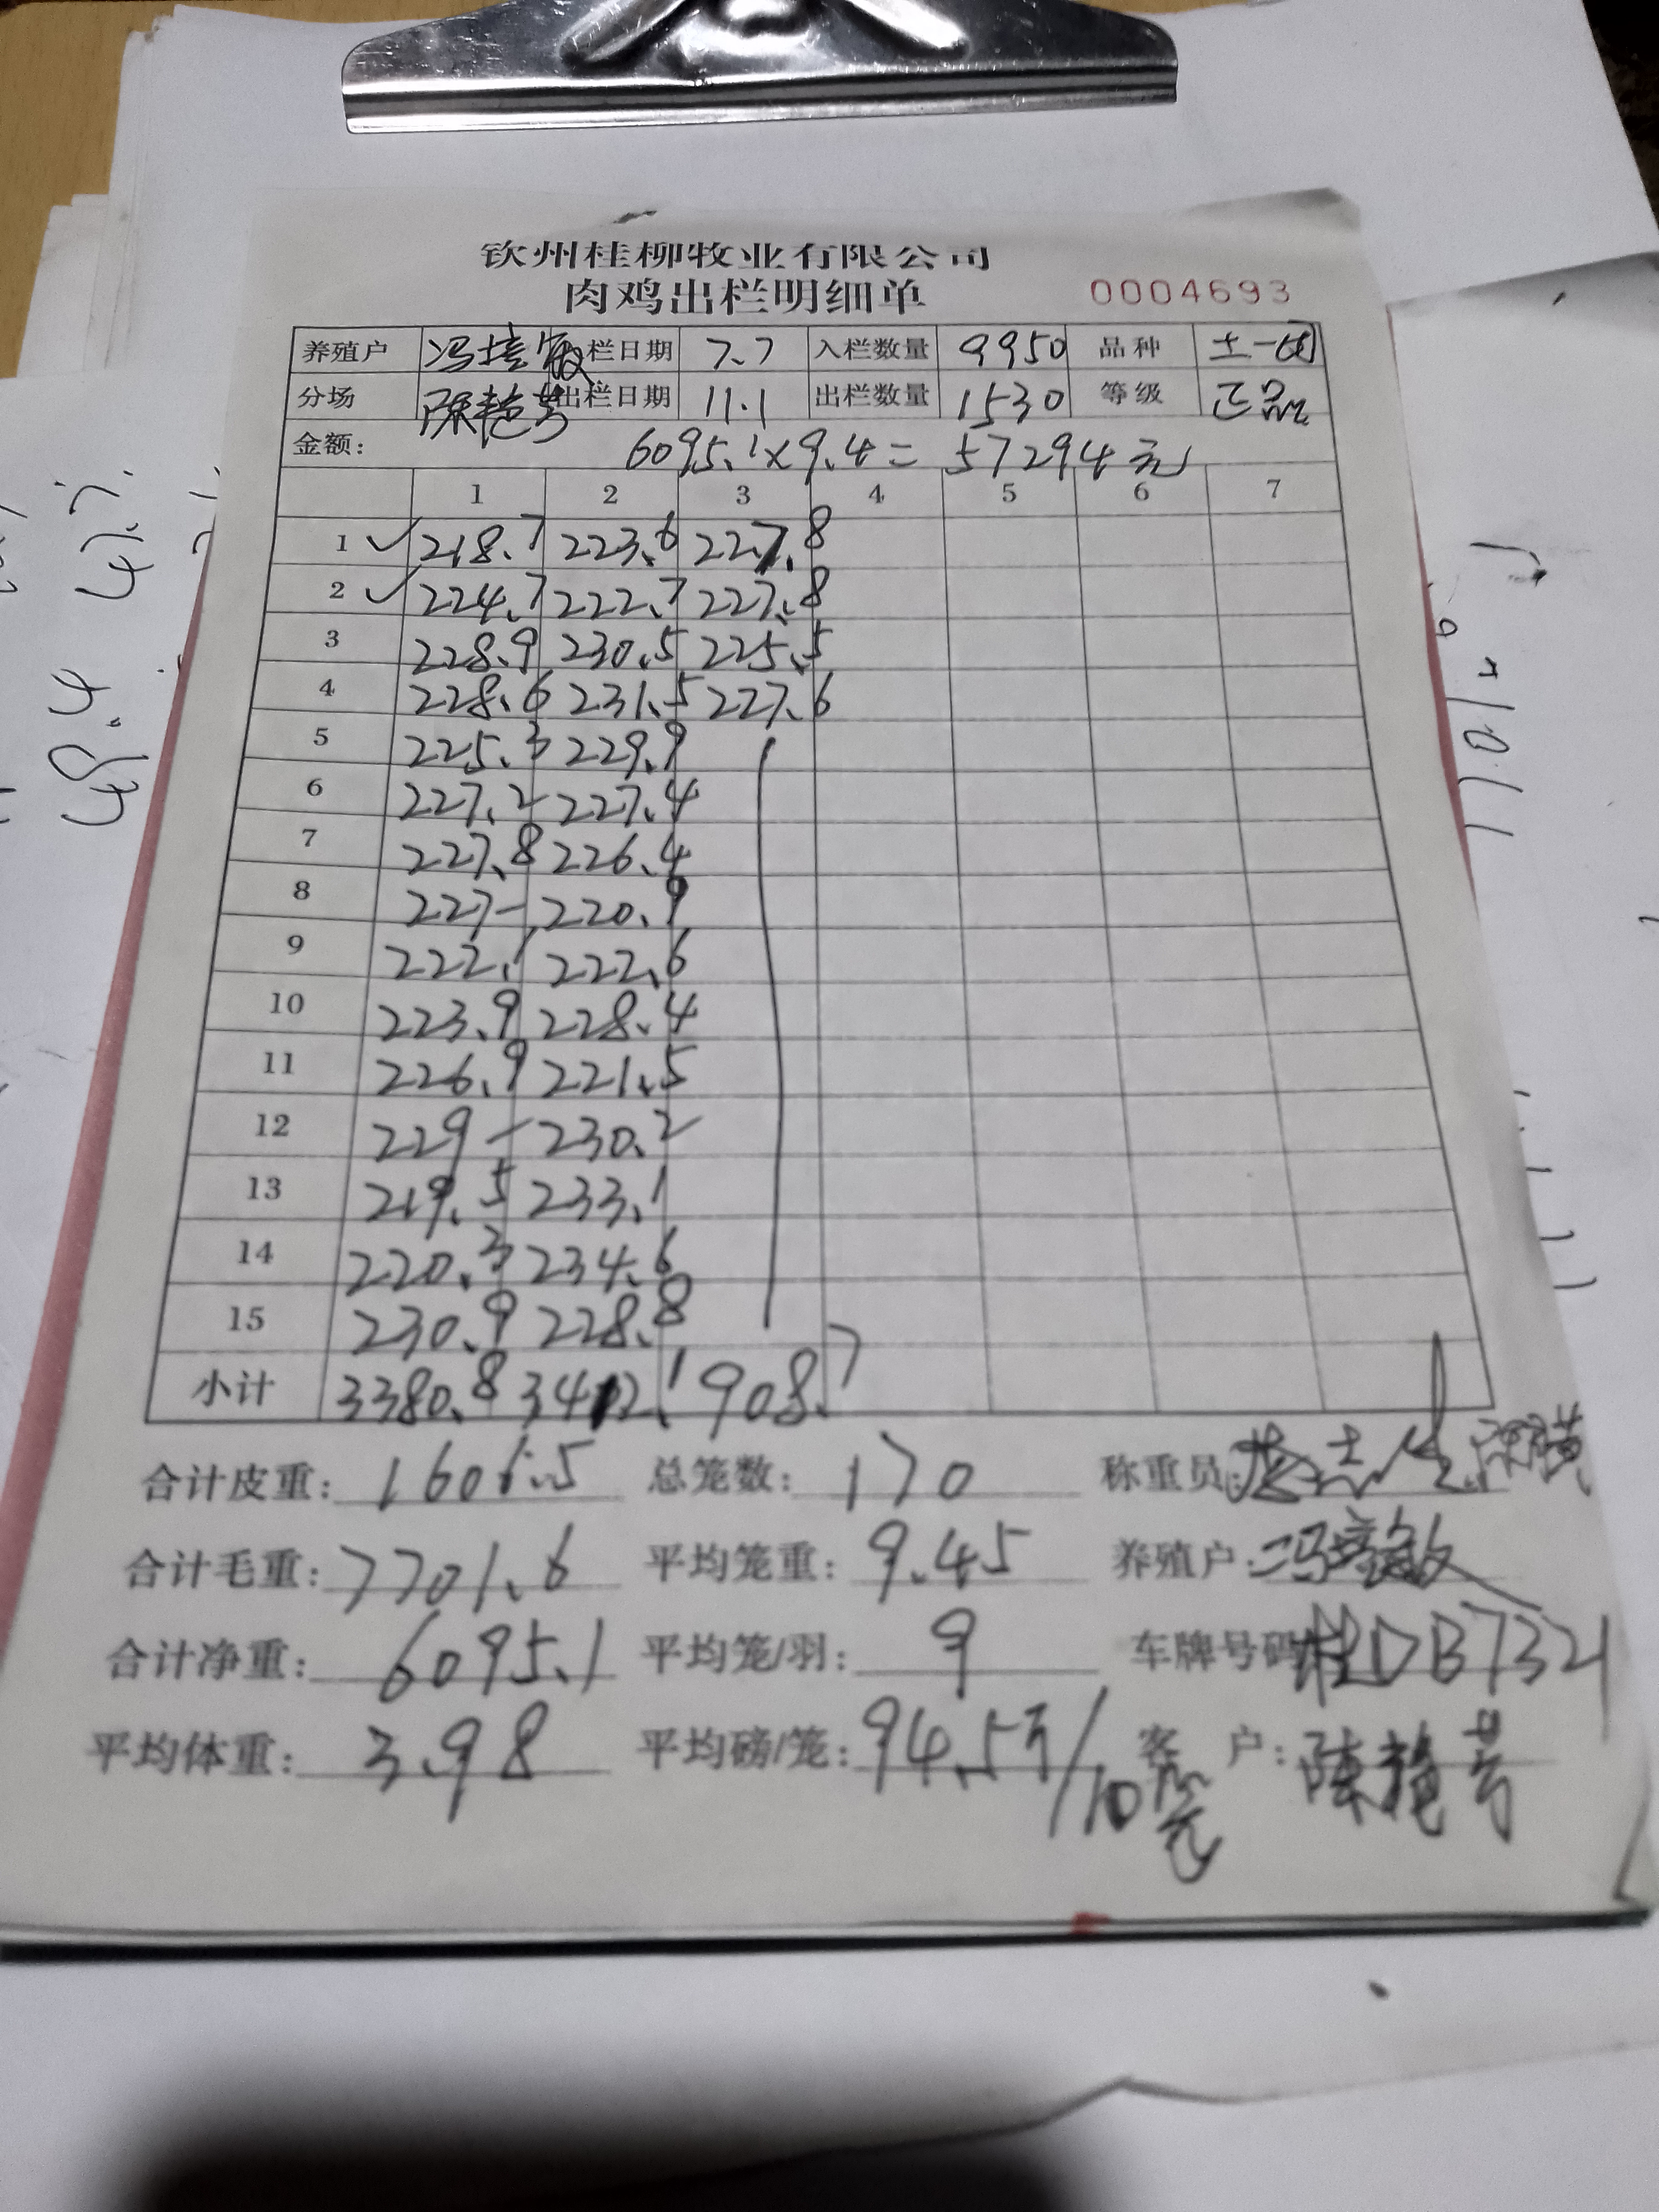 钦州桂柳牧业有限公司
肉鸡出栏明细单 0004693
养殖户 冯培敏 栏日期 7.7 入栏数量 9950 品种 土一
分场 陈艳芳 出栏日期 11.1 出栏数量 1530 等级 正品
金额: 6095.1×9.4= 57294元
1 2 3 4 5 6 7
1 ✓ 218.7 223.6 227.8
2 ✓ 224.7 222.7 227.8
3 228.9 230.5 225.5
4 228.6 231.5 227.6
5 225.3 229.9
6 227.2 227.4
7 227.8 226.4
8 227- 220.9
9 222.1 222.6
10 223.9 228.4
11 226.9 221.5
12 229- 230.2
13 219.5 233.1
14 220.3 234.6
15 230.9 228.8
小计 3380.8 3412.1 908.7
合计皮重: 1606.5 总笼数: 170 称重员:
合计毛重: 7701.6 平均笼重: 9.45 养殖户: 冯培敏
合计净重: 6095.1 平均笼/羽: 9 车牌号码 桂DB7321
平均体重: 3.98 平均磅/笼: 94.5斤/10 客户: 陈艳芳